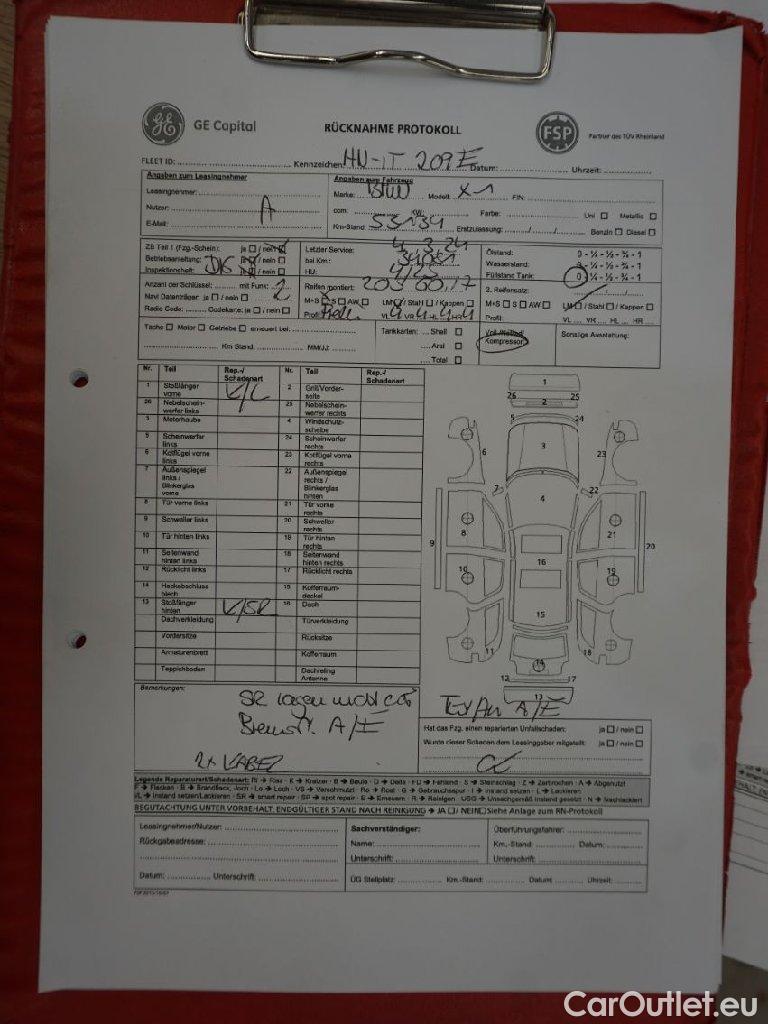 GE
GE Capital
RÜCKNAHME PROTOKOLL
FSP
Partner des TÜV Rheinland
FLEET ID: Kennzeichen HU-IT 209E Datum: Uhrzeit:
Angaben zum Leasingnehmer
Leasingnehmer:
Nutzer: A
E-Mail:
Angaben zum Fahrzeug
Marke: BMW Modell: X1 FIN:
ccm: KW: Farbe: Uni Metallic
Km-Stand: 53134 Erstzulassung: Benzin Diesel
ZB Teil 1 (Fzg.-Schein): ja / nein
Betriebsanleitung: ja / nein
Inspektionsheft: DIG ja / nein
Anzahl der Schlüssel: mit Funk: 2
Navi Datenträger: ja / nein
Radio Code: Codekarte: ja / nein
Letzter Service: 4.3.24
bei Km:
HU:
Reifen montiert: 205 60 17
M+S S AW LM / Stahl / Kappen
Profil: VL 4 VR 4 HL 4 HR 4
Ölstand: 0 - ¼ - ½ - ¾ - 1
Wasserstand: 0 - ¼ - ½ - ¾ - 1
Füllstand Tank: 0 - ¼ - ½ - ¾ - 1
2. Reifensatz:
M+S S AW LM / Stahl / Kappen
Profil: VL VR HL HR
Tacho Motor Getriebe erneuert bei:
Km Stand: MM/JJ:
Tankkarten: Shell
Aral
Total
Kompressor
Sonstige Ausstattung:
Nr. Teil Rep.-/ Schadenart Nr. Teil Rep.-/ Schadenart
1 Stoßfänger vorne K/L 2 Grill/Vorderseite
26 Nebelscheinwerfer links 25 Nebelscheinwerfer rechts
3 Motorhaube 4 Windschutzscheibe
5 Scheinwerfer links 24 Scheinwerfer rechts
6 Kotflügel vorne links 23 Kotflügel vorne rechts
7 Außenspiegel links / Blinkerglas vorne 22 Außenspiegel rechts / Blinkerglas hinten
8 Tür vorne links 21 Tür vorne rechts
9 Schweller links 20 Schweller rechts
10 Tür hinten links 19 Tür hinten rechts
11 Seitenwand hinten links 18 Seitenwand hinten rechts
12 Rücklicht links 17 Rücklicht rechts
14 Heckabschlussblech 15 Kofferraumdeckel
13 Stoßfänger hinten K/SR 16 Dach
Dachverkleidung Türverkleidung
Vordersitze Rücksitze
Armaturenbrett Kofferraum
Teppichboden Dachreling Antenne
1
26 2 25
5 24
6 3 23
7 4 22
8 21
9 16 20
10 19
15
11 14 18
12 13 17
Bemerkungen:
SR lagen nicht
A/E
2x KABEL
A/E
Hat das Fzg. einen reparierten Unfallschaden: ja / nein
Wurde dieser Schaden dem Leasinggeber mitgeteilt: ja / nein
Legende Reparaturart/Schadenart: Ri → Riss - K → Kratzer - B → Beule - D → Delle - FU → Fehlend - S → Steinschlag - Z → Zerbrochen - A → Abgenutzt
F → Flecken - B → Brandfleck, -loch - Lo → Loch - VS → Verschmutzt - Ro → Rost - G → Gebrauchsspur - I → instand setzen - L → Lackieren
I/L → instand setzen/Lackieren - SR → smart repair - SP → spot repair - E → Erneuern - R → Reinigen - USG → Unsachgemäß instand gesetzt - N → Nachlackiert
BEGUTACHTUNG UNTER VORBEHALT. ENDGÜLTIGER STAND NACH REINIGUNG → JA / NEIN Siehe Anlage zum RN-Protokoll
Leasingnehmer/Nutzer:
Rückgabeadresse:
Datum: Unterschrift:
Sachverständiger:
Name:
Unterschrift:
Überführungsfahrer:
Km.-Stand: Datum:
Unterschrift:
ÜG Stellplatz: Km.-Stand: Datum Uhrzeit:
CarOutlet.eu